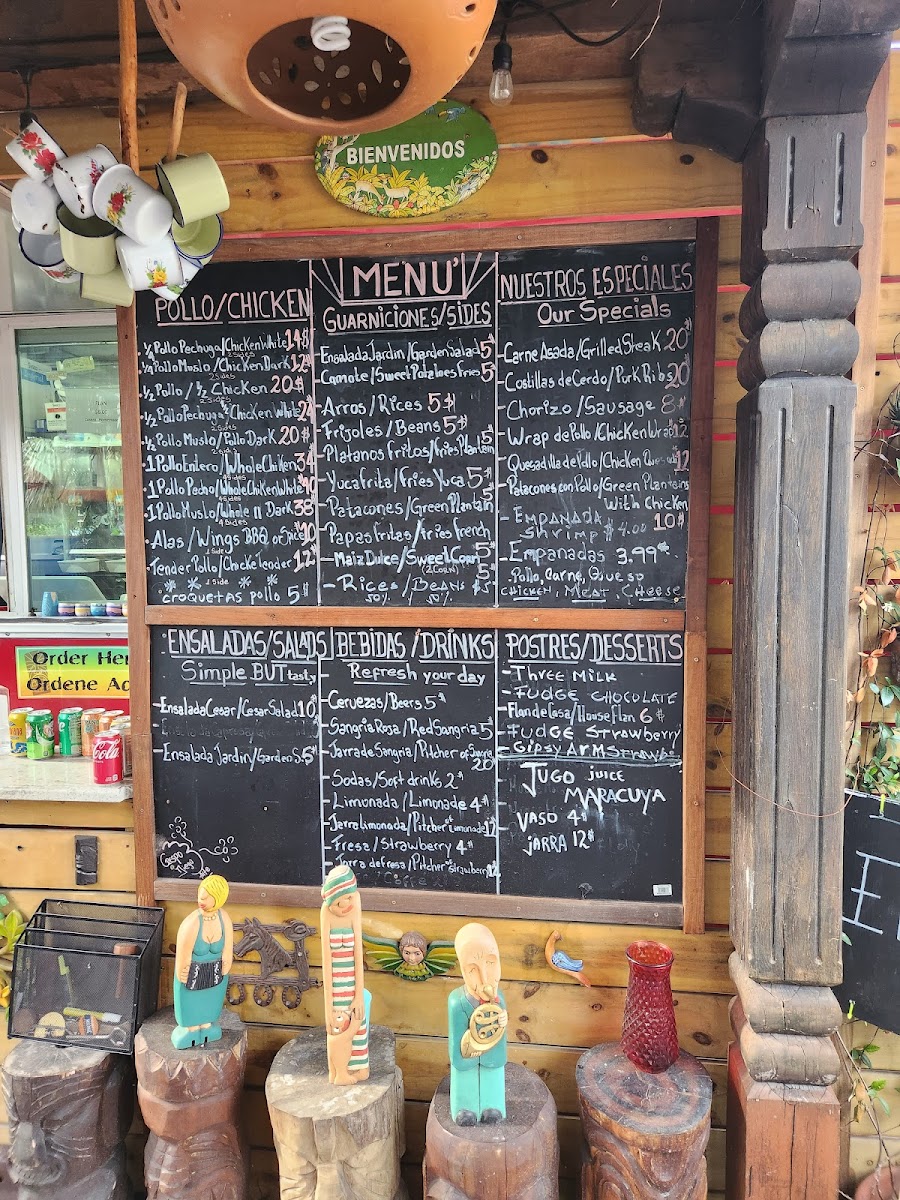 BIENVENIDOS
MENU'
POLLO/CHICKEN
¼ Pollo Pechuga/Chicken White 14$
2 Sides
¼ Pollo Muslo/Chicken Dark 12$
2 Sides
½ Pollo/½ Chicken 20$
2 Sides
½ Pollo Pechuga ½ Chicken White
2 Sides
½ Pollo Muslo/Pollo Dark 20$
2 Side's
1 Pollo Entero/Whole Chiken 34
4 Sides
1 Pollo Pecho/Whole Chiken White
4 Sides
1 Pollo Muslo/Whole " Dark 38
4 Sides
Alas/Wings BBQ or Spice 10$
1 Side
Tender Pollo/Chicke Tender 12$
1 side
croquetas pollo 5$
GUARNICIONES/SIDES
Ensalada Jardin/Garden Salad 5$
Camote/Sweet Potatoes Fries 5$
Arros/Rices 5$
Frijoles/Beans 5$
Platanos Fritos/Fries Plantein 5$
Yuca frita/Fries Yuca 5$
Patacones/Green Plantain 5$
Papas fritas/fries french
Maiz Dulce/Sweet Corn 5$
(2 CORN)
Rices/Beans $5
50% 50%
NUESTROS ESPECIALES
Our Specials
Carne Asada/Grilled Steak 20$
Costillas de Cerdo/Pork Ribs 20$
Chorizo/Sausage 8$
Wrap de Pollo/Chicken Wrap 12$
Quesadilla de Pollo/Chicken 12$
Patacones con Pollo/Green Plantains
With Chicken
10$
EMPANADA
Shrimp $4.00
Empanadas 3.99
Pollo, Carne, Queso
CHICKEN, MEAT, CHEESE
ENSALADAS/SALADS
Simple BUT tasty
Ensalada Cesar/Cesar Salad 10$
Ensalada Jardin/Garden S. 5$
BEBIDAS/DRINKS
Refresh your day
Cervezas/Beers 5$
Sangria Rosa/Red Sangria 5
Jarra de Sangria/Pitcher of Sangria
20$
Sodas/Soft drinks 2$
Limonada/Limonade 4$
Jarra limonada/Pitcher Limonade 12$
Fresa/Strawberry 4$
Jarra de fresa/Pitcher of Strawberry 12$
POSTRES/DESSERTS
Three Milk
FUDGE CHOCOLATE
Flan de Casa/House Flan 6$
FUDGE Strawberry
Gipsy Arm Strawb
JUGO juice
MARACUYA
VASO 4$
jARRA 12$
Order Her
Ordene Aq
Coca-Cola